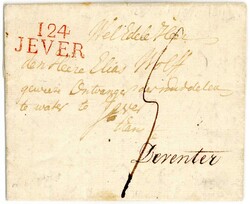 124
JEVER
Wel Edele Heer
den Heere Elias Wolff
geweesen Ontvanger der middelen
te water te Jever
Van
Deventer